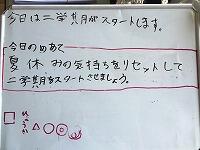 今日は二学期がスタートします。
今日のめあて
夏休みの気持ちをリセットして
二学期をスタートさせましょう。